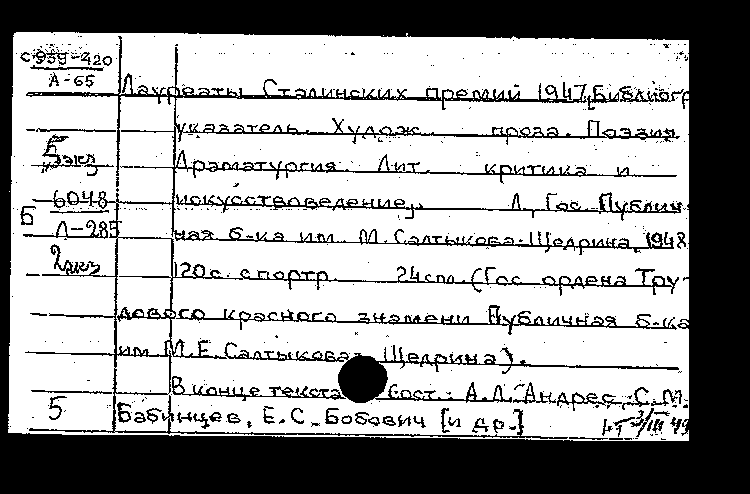 С939-420
А-65
Лауреаты Сталинских премий 1947, Библиогр
указатель. Худож. проза. Поэзия.
5 экз
Драматургия. Лит. критика и
6048
искусствоведение,. Л, Гос. Публич
Б Л-285
ная б-ка им. М. Салтыкова-Щедрина, 1948
2 экз
120с. с портр. 24см. (Гос ордена Тру-
дового красного знамени Публичная б-ка
им М.Е. Салтыкова-Щедрина).
В конце текста Сост.: А.Л. Андрес, С.М.
5
Бабинцев, Е.С. Бобович [и др.]